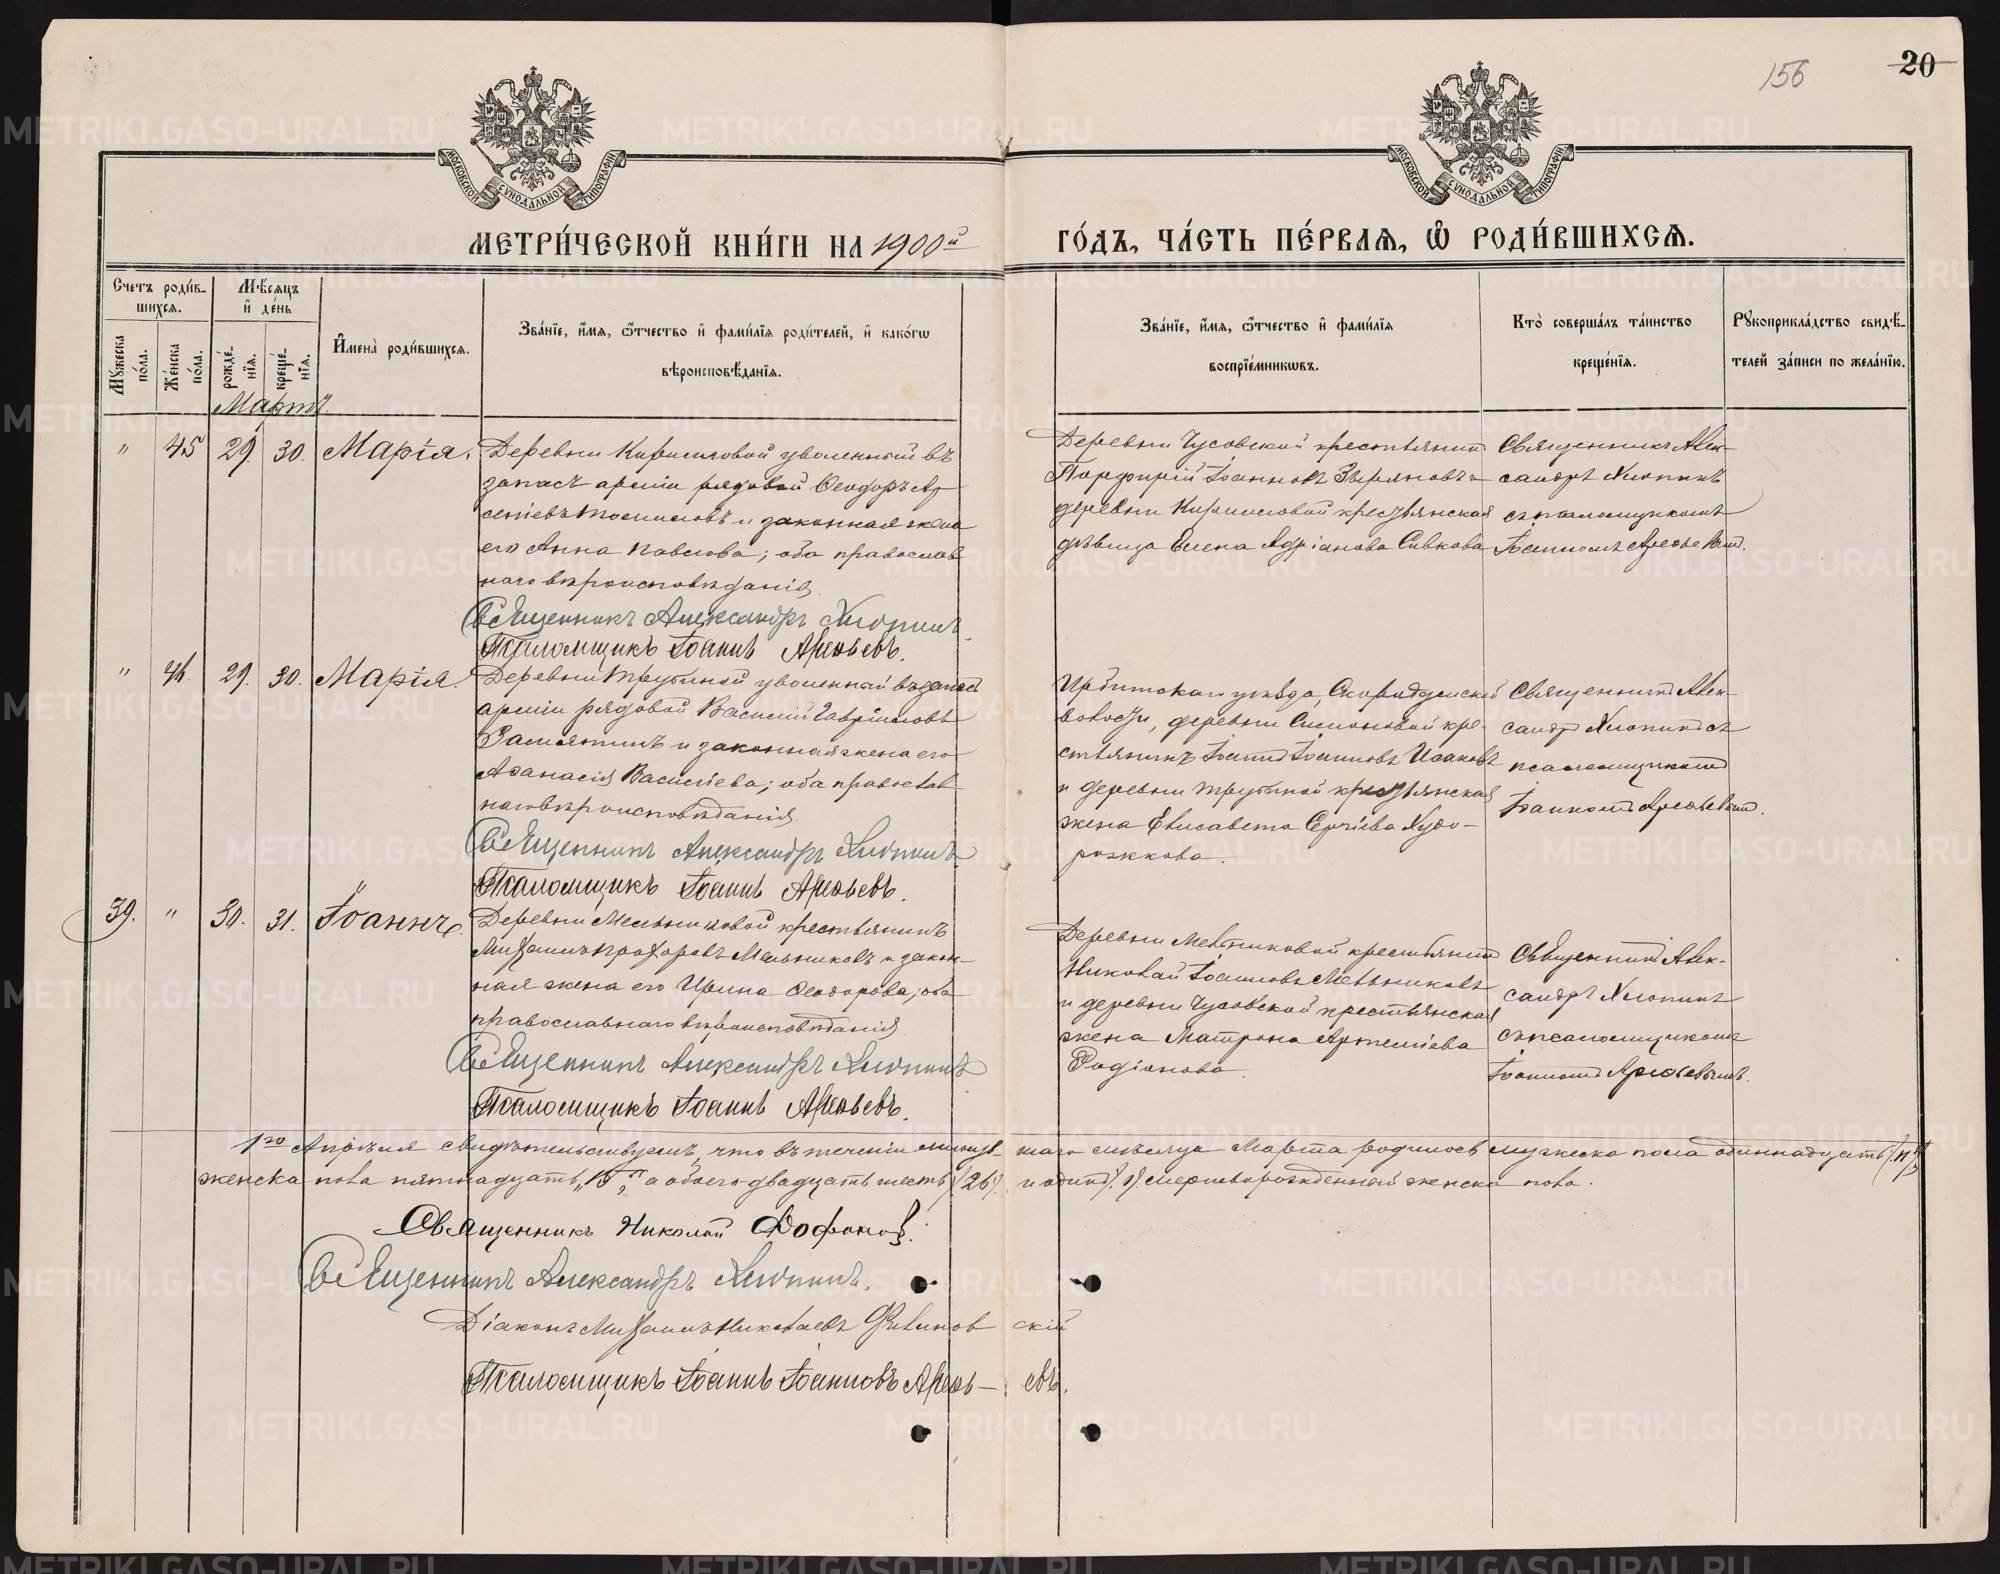 156
20
МОСКОВСКОЙ СУНОДАЛЬНОЙ ТИПОГРАФІИ
МОСКОВСКОЙ СУНОДАЛЬНОЙ ТИПОГРАФІИ
МЕТРИ́ЧЕСКОЙ КНИ́ГИ НА 1900й
ГО́ДЪ, ЧА́СТЬ ПЕ́РВАѦ, Ѡ҆ РОДИ́ВШИХСѦ.
Счетъ роди́в-
шихсѧ.
Мꙋ́жеска по́ла.
Же́нска по́ла.
Мѣ́сѧцъ
и҆ де́нь
рожде́-
нїѧ.
креще́-
нїѧ.
И҆мена̀ роди́вшихсѧ.
Зва́нїе, и҆́мѧ, ѻ҆́тчество и҆ фами́лїѧ роди́телей, и҆ како́гѡ
вѣроисповѣ́данїѧ.
Зва́нїе, и҆́мѧ, ѻ҆́тчество и҆ фами́лїѧ
воспрїе́мникѡвъ.
Кто̀ соверша́лъ та́инство
креще́нїѧ.
Рꙋкоприкла́дство свидѣ́-
телей за́писи по жела́нїю.
Мартъ
" 45 29. 30. Марія.
Деревни Кирилловой уволенный въ
запасъ арміи рядовой Ѳеодоръ Ар
сеніевъ и законная жена
его Анна Павлова; оба православ
наго вѣроисповѣданія.
Священникъ Александръ Хлопинъ.
Псаломщикъ Іоаннъ Арефьевъ.
Деревни Чусовской крестьянин
Порфирій Іоанновъ Зыряновъ и
деревни Кирилловой крестьянская
дѣвица Елена Адріанова Сивкова
Священникъ Алек-
сандръ Хлопинъ
съ псаломщикомъ
Іоанномъ Арефьевым.
" 46. 29. 30. Марія.
Деревни Трубиной уволенный в запас
арміи рядовой Василій Гавріиловъ
Замятинъ и законная жена его
Аѳанасія Василіева; оба православ
наго вѣроисповѣданія.
Священникъ Александръ Хлопинъ
Псаломщикъ Іоаннъ Арефьевъ.
Ирбитскаго уѣзда, Скородумской
волости, деревни Симоновой кре-
стьянинъ Іоаннъ Іоанновъ Исаковъ
и деревни Трубиной крестьянская
жена Елисавета Сергіева Худо-
рожкова.
Священникъ Алек-
сандр Хлопинъ съ
псаломщикомъ
Іоанномъ Арефьевым.
39. " 30. 31. Іоаннъ.
Деревни Мельниковой крестьянинъ
Михаилъ Прохоровъ Мельниковъ и закон-
ная жена его Ирина Ѳеодорова; оба
православнаго вѣроисповѣданія.
Священникъ Александръ Хлопинъ
Псаломщикъ Іоаннъ Арефьевъ.
Деревни Мельниковой крестьянин
Николай Мельниковъ
и деревни Чусовской крестьянская
жена Матрона Артеміева
Родіонова.
Священникъ Алек-
сандръ Хлопинъ
съ псаломщикомъ
Іоанномъ Арефьевымъ.
1го Апрѣля свидѣтельствуемъ, что въ теченіи минув-шаго мѣсяца Марта родилось мужеска пола одиннадцать /11/,
женска пола пятнадцать „15", а обоего двадцать шесть /26/. и одинъ /1/ мертворожденный женска пола.
Священникъ Николай
Священникъ Александръ Хлопинъ.
Діаконъ Михаилъ Николаевъ Филиновскій
Псаломщикъ Іоаннъ Іоанновъ Арефь-евъ.
METRIKI.GASO-URAL.RU